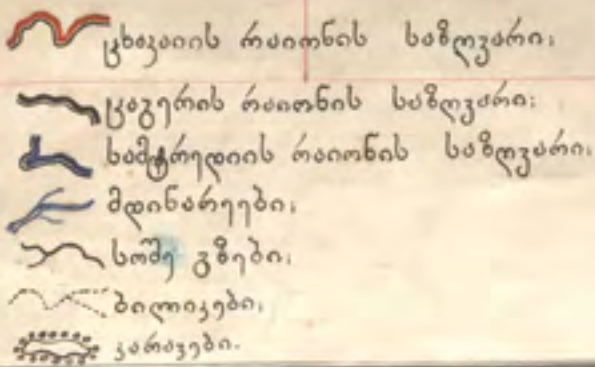 ცხაკაიის რაიონის საზღვარი;
ცაგერის რაიონის საზღვარი;
სამტრედიის რაიონის საზღვარი;
მდინარეები;
სოშე გზები;
ბილიკები;
კარავები.